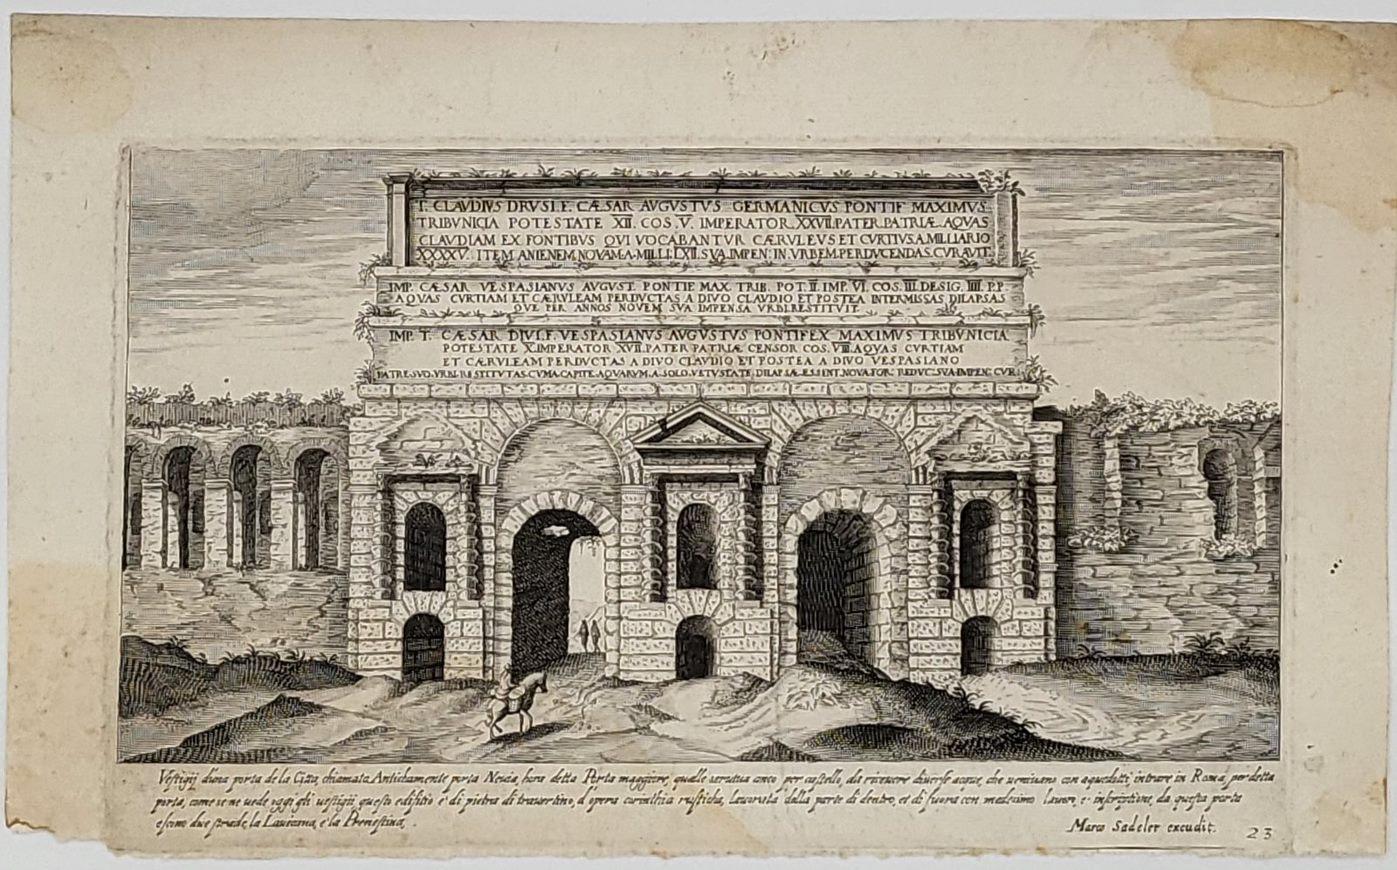 T. CLAUDIUS DRUSI.F. CÆSAR AUGUSTUS GERMANICUS PONTIF MAXIMUS
TRIBVNICIA POTESTATE XII. COS V. IMPERATOR XXVII PATER.PATRIÆ.AQUAS
CLAUDIAM EX FONTIBUS QUI VOCABANTUR CÆRULEUS ET CURTIUS.A.MILLIARIO
XXXXV. ITEM ANIENEM NOVAM.A.MILLI.LXII.SVA.IMPEN.IN.VRBEM.PERDVCENDAS.CURAVIT.
IMP. CÆSAR VESPASIANUS AUGUST. PONTIF MAX. TRIB. POT.II IMP.VI. COS.III.DESIG. IIII.P.P
AQUAS CURTIAM ET CÆRULEAM PERDUCTAS A DIVO CLAUDIO ET POSTEA INTERMISSAS DILAPSAS
QVE PER ANNOS NOVEM SVA IMPENSA VRBI.RESTITUIT
IMP. T. CÆSAR DIVI.F. VESPASIANUS AUGUSTUS PONTIFEX MAXIMUS TRIBUNICIA
POTESTATE X.IMPERATOR XVII.PATER PATRIÆ CENSOR COS.VIII.AQUAS CURTIAM
ET CÆRULEAM PERDVCTAS A DIVO CLAUDIO ET POSTEA A DIVO VESPASIANO
PATRE.SVO.VRBI.RESTITUTAS.CUM.A.CAPITE.AQUARVM.A.SOLO.VETVSTATE.DILAPSÆ.ESSENT.NOVA.FOR.REDUC.SVA.IMPEN.CUR.
Vestigij duna porta de la Citta, chiamata Antichamente porta Neuia, hora detta Porta maggiore, qualle seruiua anco per castello, da riceuere diuerse acque, che ueniuano con aquedotti, intrare in Roma, per detta
porta, come se ne uede oggi gli uestigij, questo edifitio e' di pietra di trauertino, d'opera corinthia rusticha, lauorata dalla parte di dentro, et di fuora con medesimo lauoro, e' inscrittione, da questa porta
escono due strade, la Lauicana, e' la Prenestina,
Marco Sadeler excudit. 23